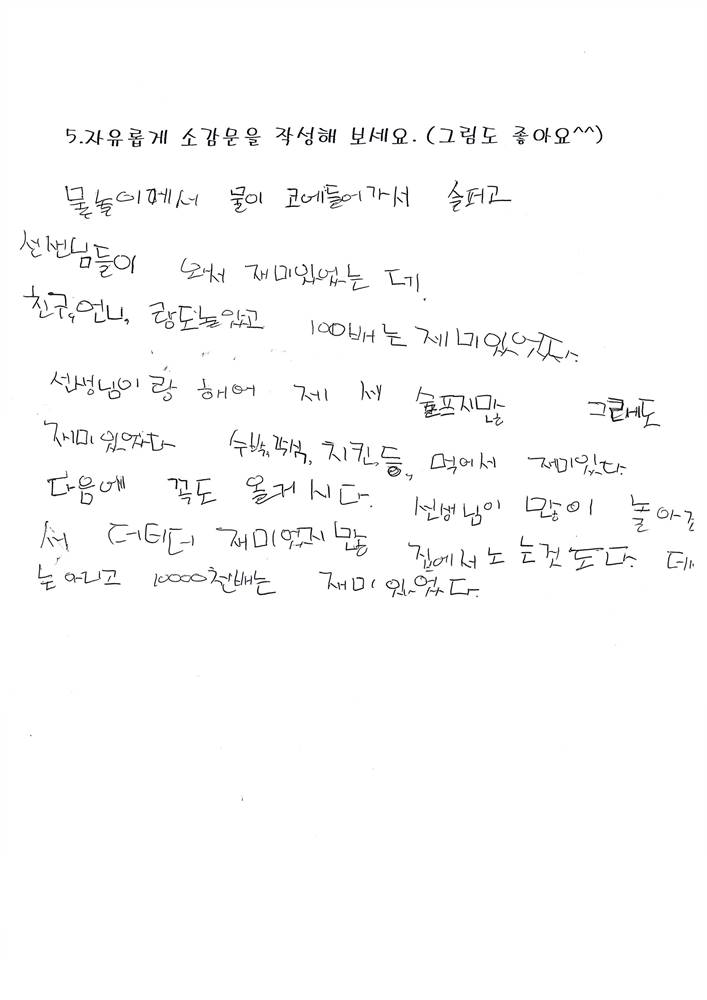 5.자유롭게 소감문을 작성해 보세요. (그림도 좋아요^^)
물놀이에서 물이 코에들어가서 슬퍼고
선샌님들이 와서 재미있었는 데.
친구, 언니, 랑도놀았고 100배는 제미있었다.
선생님이랑 해어 제 슬프지만 그레도
재미있었다 수박, 치킨등, 먹어서 재미있다.
다음에 꼭도 올거시다. 선생님이 많이 놀아
서 더더더 재미있지만 집에서노는것도다. 데
놀아니고 10000천배는 재미있었다.